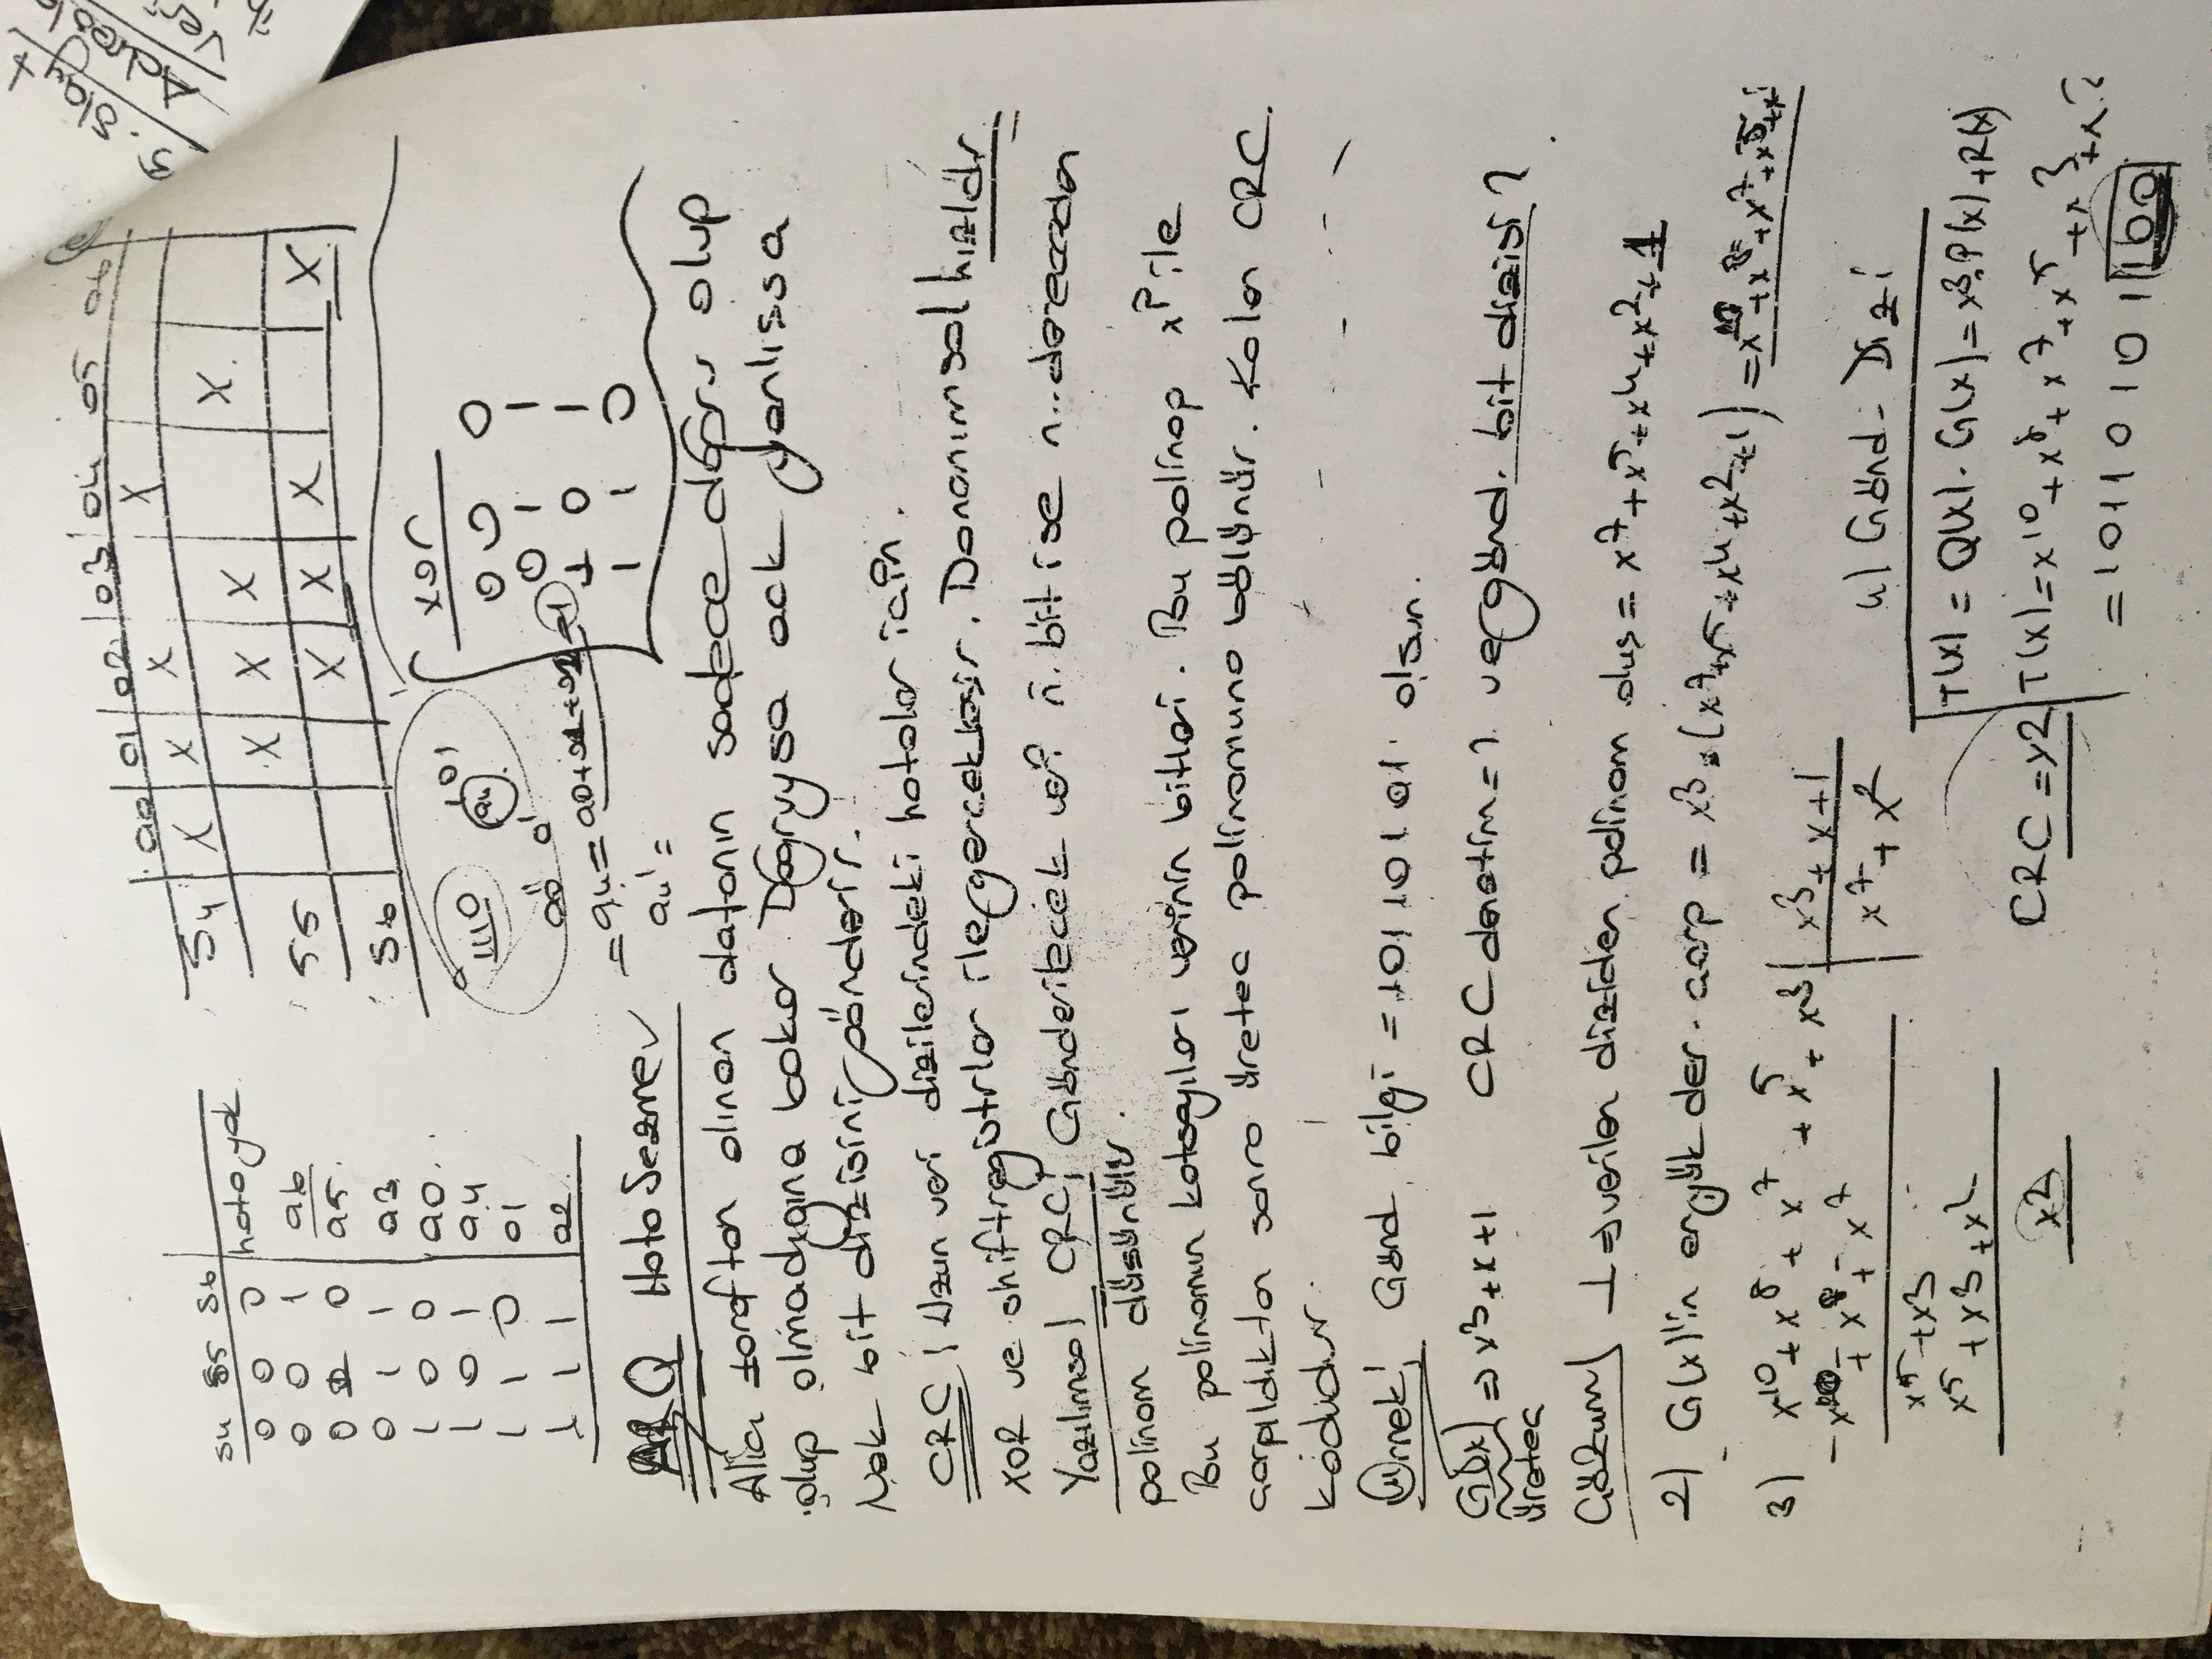 s4 s5 s6
0 0 0 hata yok
0 0 1 a6
0 1 0 a5.
0 1 1 a3
1 0 0 a0.
1 0 1 a4
1 1 0 a1
1 1 1 a2.
a0 a1 a2 a3 a4 a5 a6
S4 X X X X
S5 X X X X
S6 X X X X
1110 101
a4
xor
0 0 0
0 1 1
1 0 1
1 1 0
= a4 = a0+a1+a2 = 1
a4' =
ARQ Hata Sezme
Alıcı taraftan alınan datanın sadece doğru olup
olup olmadığına bakar. Doğruysa ack yanlıssa
Nak bit dizisini gönderir.
CRC; Uzun veri dizilerindeki hatalar icin.
XOR ve shiftregistrlar ile gercekleşir. Donanımsal hızlıdır.
Yazılımsal CRC; Gönderilecek veri n. bit ise n.. dereceden
polinom düşünülür.
Bu polinomun katsayıları verinin bitleri. Bu polinop x^p ile
carpıldıktan sonra üretec polinomuna bölünür. Kalan CRC.
kodudur.
Örnek; Gönd. bilgi = 10110101 olsun.
G(x) => x3+x+1 CRC denetim=? ve gönd. bit dizisi?
üretec
Cözüm 1 => verilen diziden polinom oluş = x^7+x^5+x^4+x^2+1
2) G(x)'in en yük der. carp = x3.(x^7+x^5+x^4+x^2+1) = x^10+x^8+x^7+x^5+x
3) x^10+x^8+x^7+x^5+x3 x3+x+1
-x^10+-x^8+-x^7 x^7+x^2
x^5+x3
x^5+x3+x2
x2
CRC = x2
4) Gönd. Dizi
T(x) = Q(x).G(x) = x3.P(x)+R(x)
T(x) = x^10+x^8+x^7+x^5+x^3+x^2
= 10110101100
5. slayt